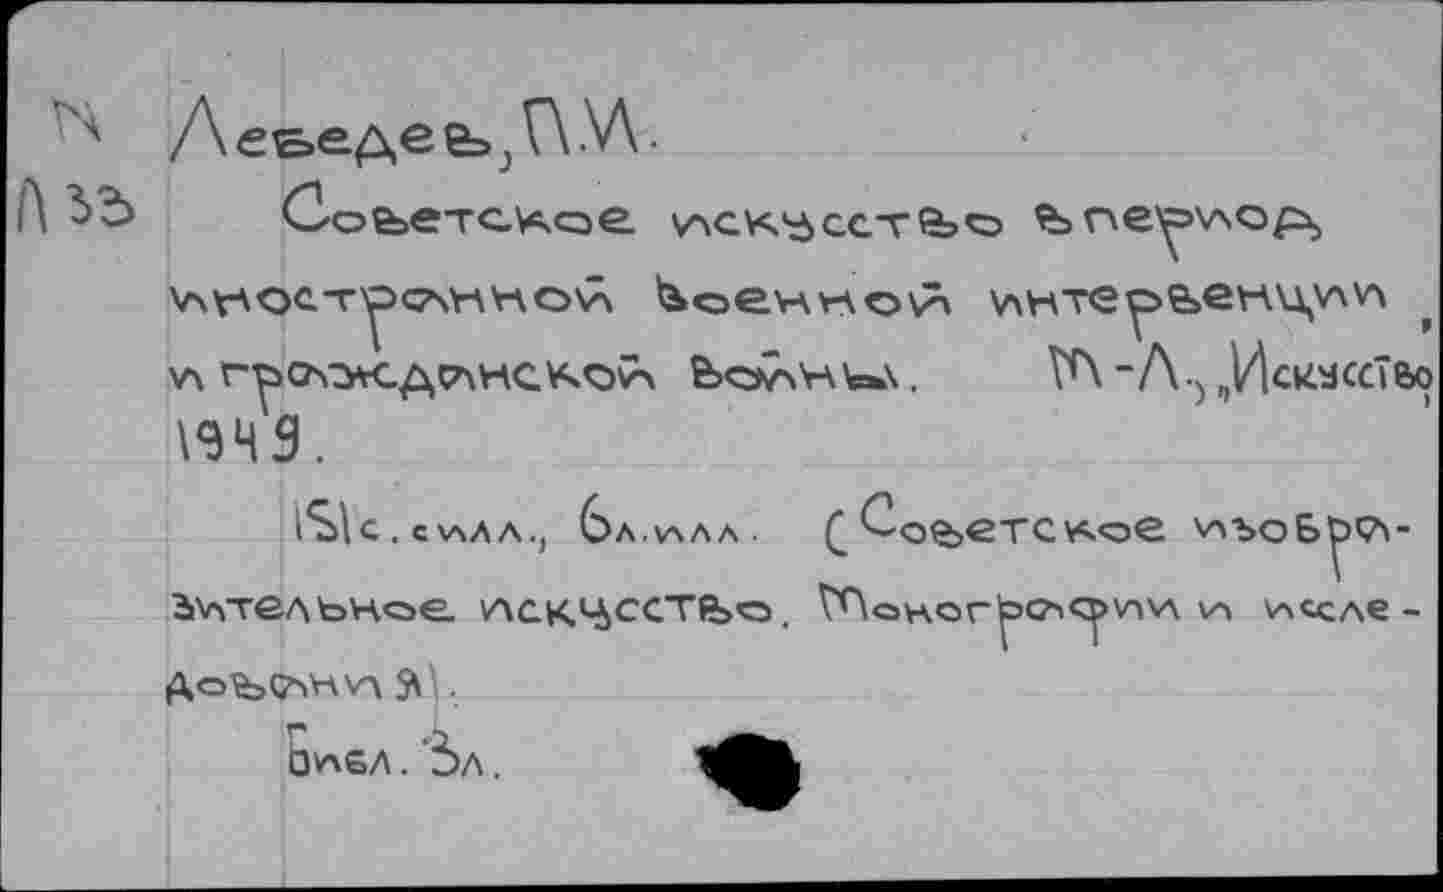 И Лебедев, П.И.
Л33 Советское искусство в период
иностранной военной интервенции
и гражданской войны. М-Л., „Искусство,
1949.
151с. с илл., 6л.илл. (Советское изобра-
зительное искусство. Монографии и иссле-
дования).
Библ. 3л.